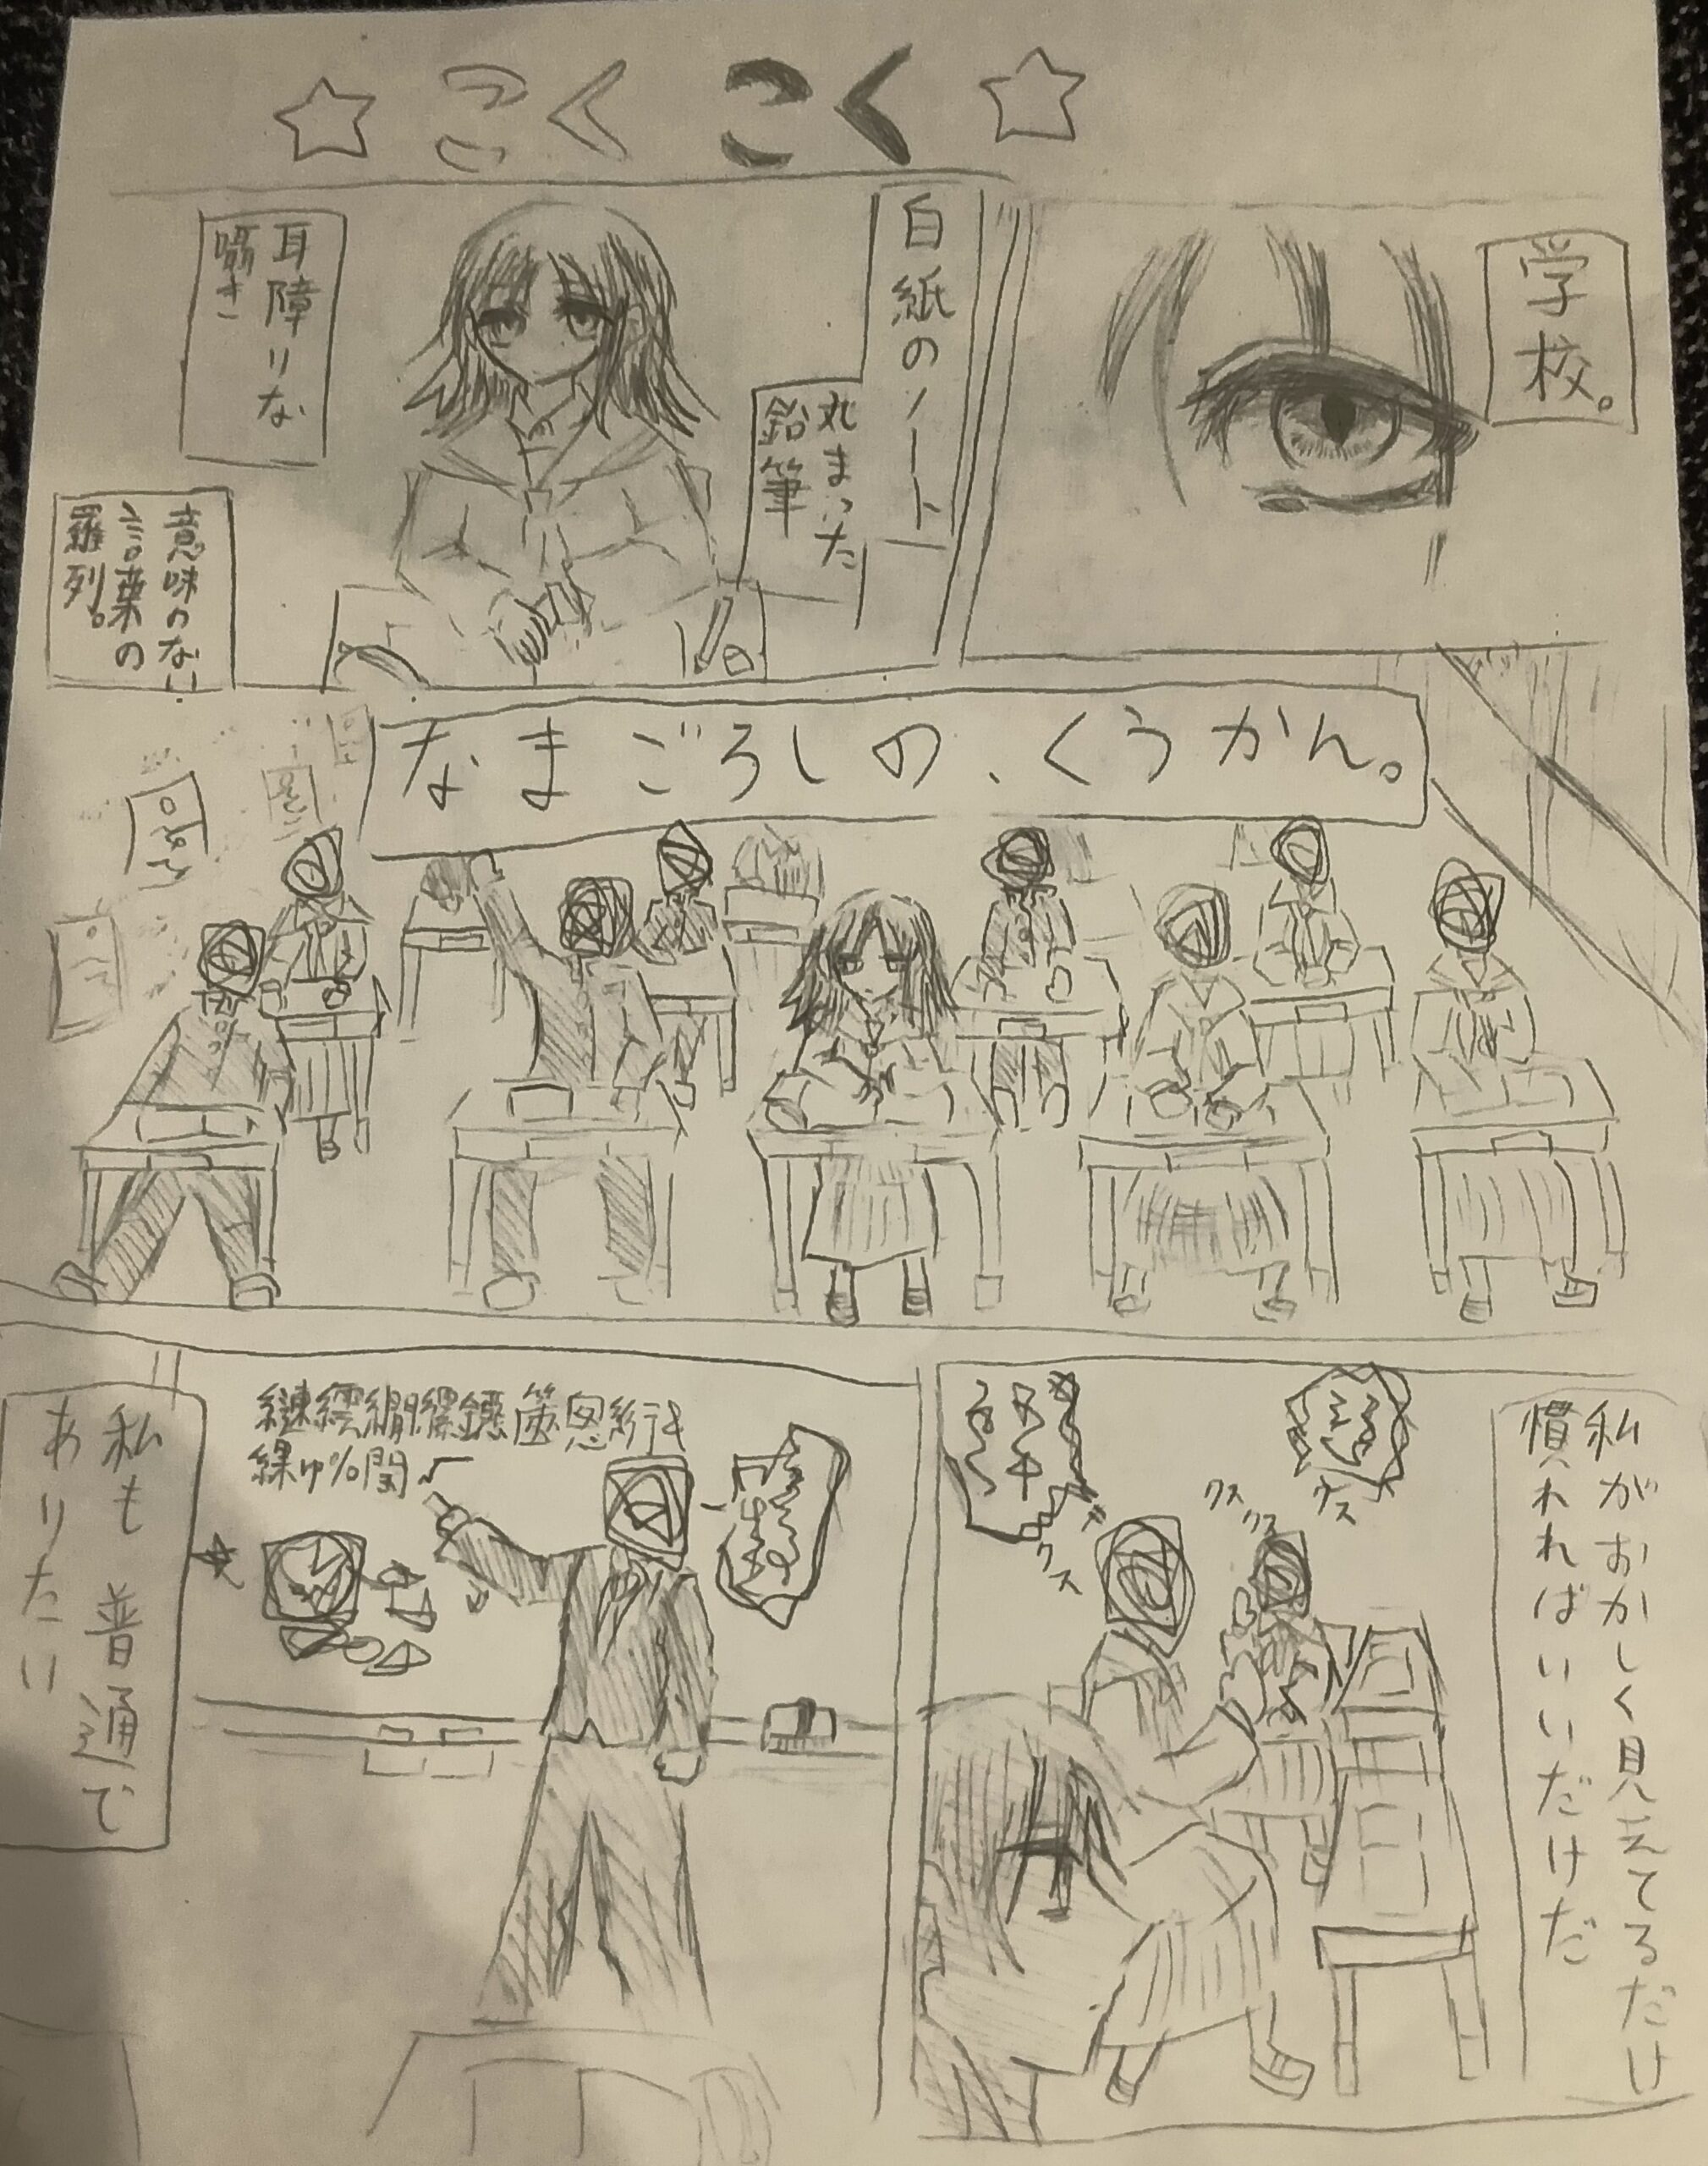 ☆こくこく☆
学校。
白紙のノート
丸まった
鉛筆
耳障りな
囁き
意味のない
言葉の
羅列。
なまごろしの、くうかん。
私がおかしく見えてるだけ
慣れればいいだけだ
クス
クス
クス
クス
私も普通で
ありたい